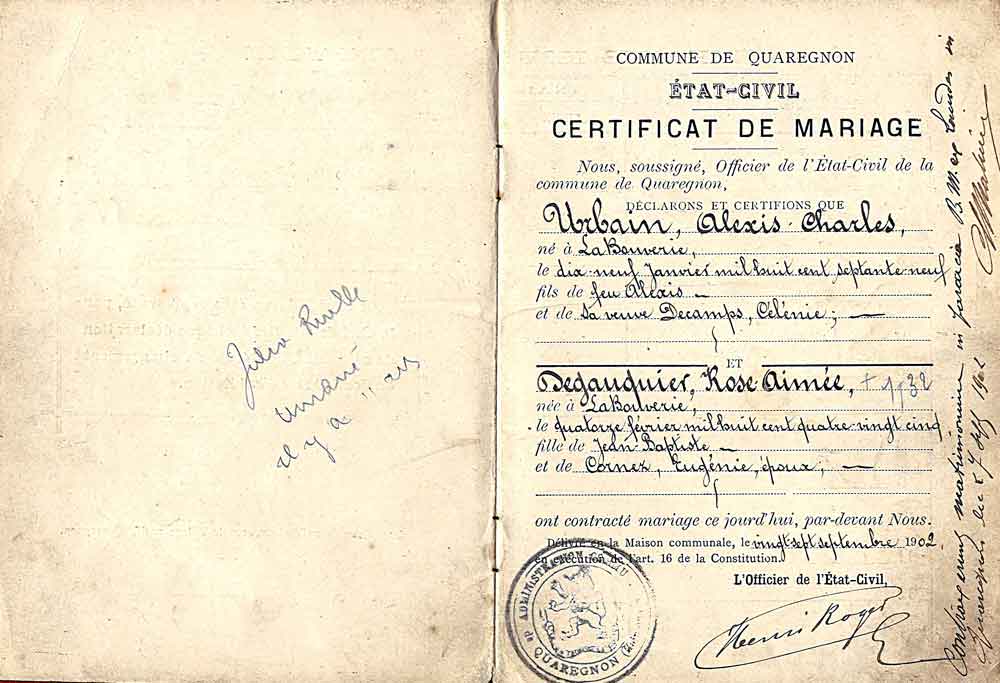 il y a
COMMUNE DE QUAREGNON
ÉTAT-CIVIL
CERTIFICAT DE MARIAGE
Nous, soussigné, Officier de l'État-Civil de la
commune de Quaregnon,
DÉCLARONS ET CERTIFIONS QUE
Urbain, Alexis Charles,
né à LaBouverie,
le dix-neuf Janvier mil huit cent septante-neuf
fils de feu Alexis —
et de sa veuve Decamps, Célénie ; —
ET
Degauquier, Rose Aimée, + 1932
née à LaBouverie,
le quatorze février mil huit cent quatre vingt cinq
fille de Jean-Baptiste —
et de Cornez, Eugénie, époux ; —
ont contracté mariage ce jourd'hui, par-devant Nous.
Délivré en la Maison communale, le vingt-sept septembre 1902
en exécution de l'art. 16 de la Constitution.
L'Officier de l'État-Civil,
Henri Roger
ADMINISTRATION
QUAREGNON
Contraxerunt matrimonium in
die 27 1902